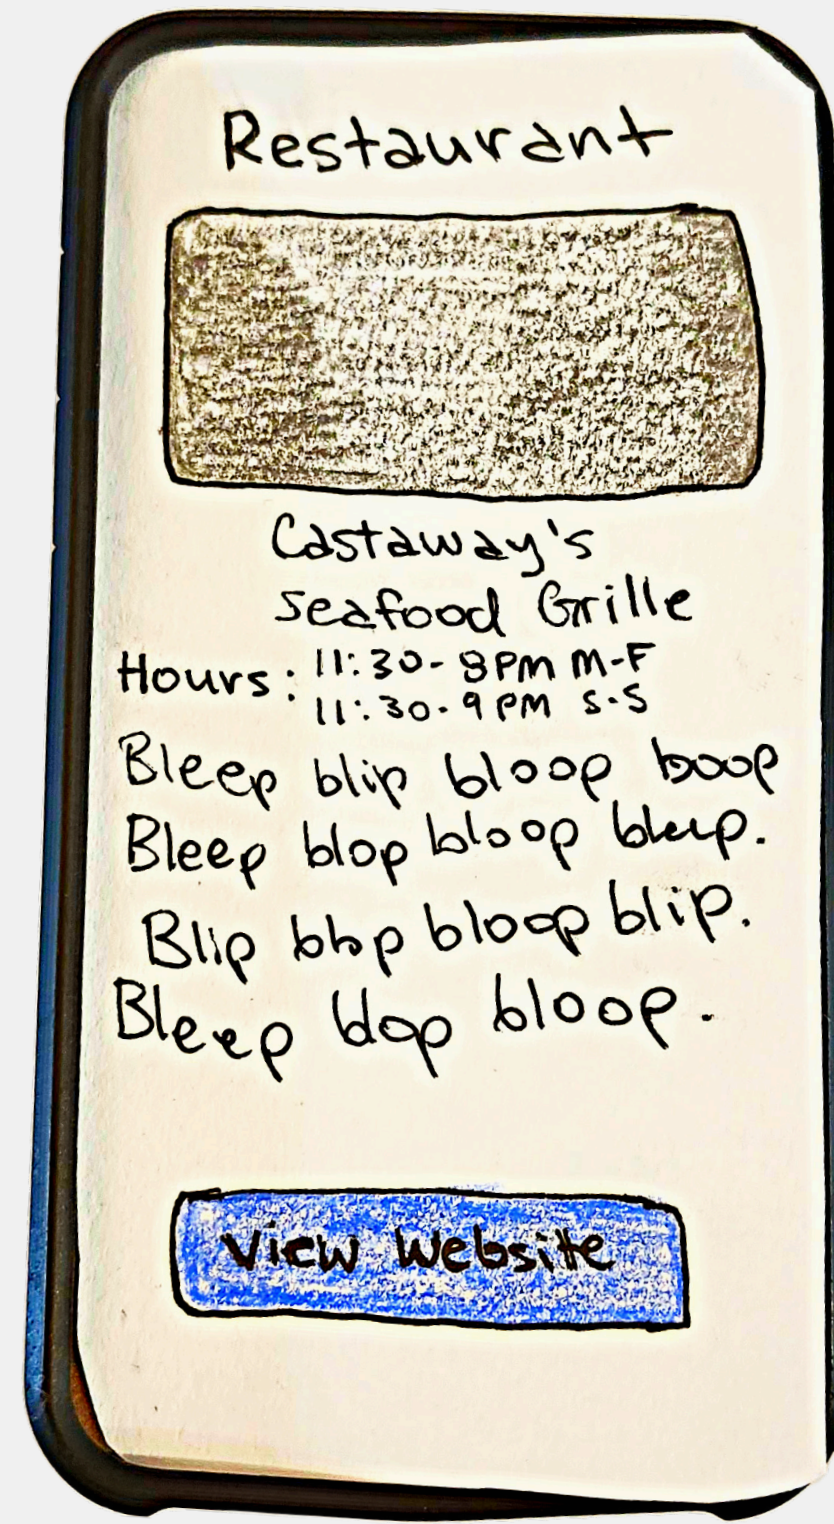 Restaurant
Castaway's
seafood Grille
Hours: 11:30-8PM M-F
11:30-9PM S-S
Bleep blip bloop boop
Bleep blop bloop bleep.
Blip blop bloop blip.
Bleep blop bloop.
View Website